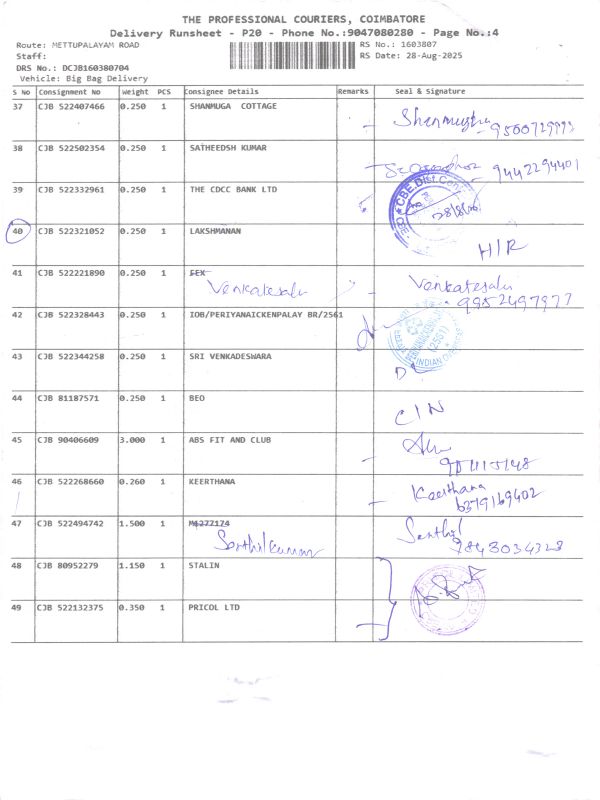 THE PROFESSIONAL COURIERS, COIMBATORE
Delivery Runsheet - P20 - Phone No.:9047080280 - Page No.:4
Route: METTUPALAYAM ROAD RS No.: 1603807
Staff: RS Date: 28-Aug-2025
DRS No.: DCJB160380704
Vehicle: Big Bag Delivery
S No Consignment No Weight PCS Consignee Details Remarks Seal & Signature
37 CJB 522407466 0.250 1 SHANMUGA COTTAGE Shanmugha
38 CJB 522502354 0.250 1 SATHEEDSH KUMAR 9442294401
39 CJB 522332961 0.250 1 THE CDCC BANK LTD CBE.Dist.Cen 28/8/25
40 CJB 522321052 0.250 1 LAKSHMANAN H/R
41 CJB 522221890 0.250 1 EEX Venkatesalu Venkatesalu
9952497977
42 CJB 522328443 0.250 1 IOB/PERIYANAICKENPALAY BR/2561 (2561) INDIAN OVERSEAS
43 CJB 522344258 0.250 1 SRI VENKADESWARA DL
44 CJB 81187571 0.250 1 BEO C/N
45 CJB 90406609 3.000 1 ABS FIT AND CLUB
46 CJB 522268660 0.260 1 KEERTHANA Keerthana
6379169402
47 CJB 522494742 1.500 1 M4277174 Senthilkumar Senthil
9843034328
48 CJB 80952279 1.150 1 STALIN
49 CJB 522132375 0.350 1 PRICOL LTD